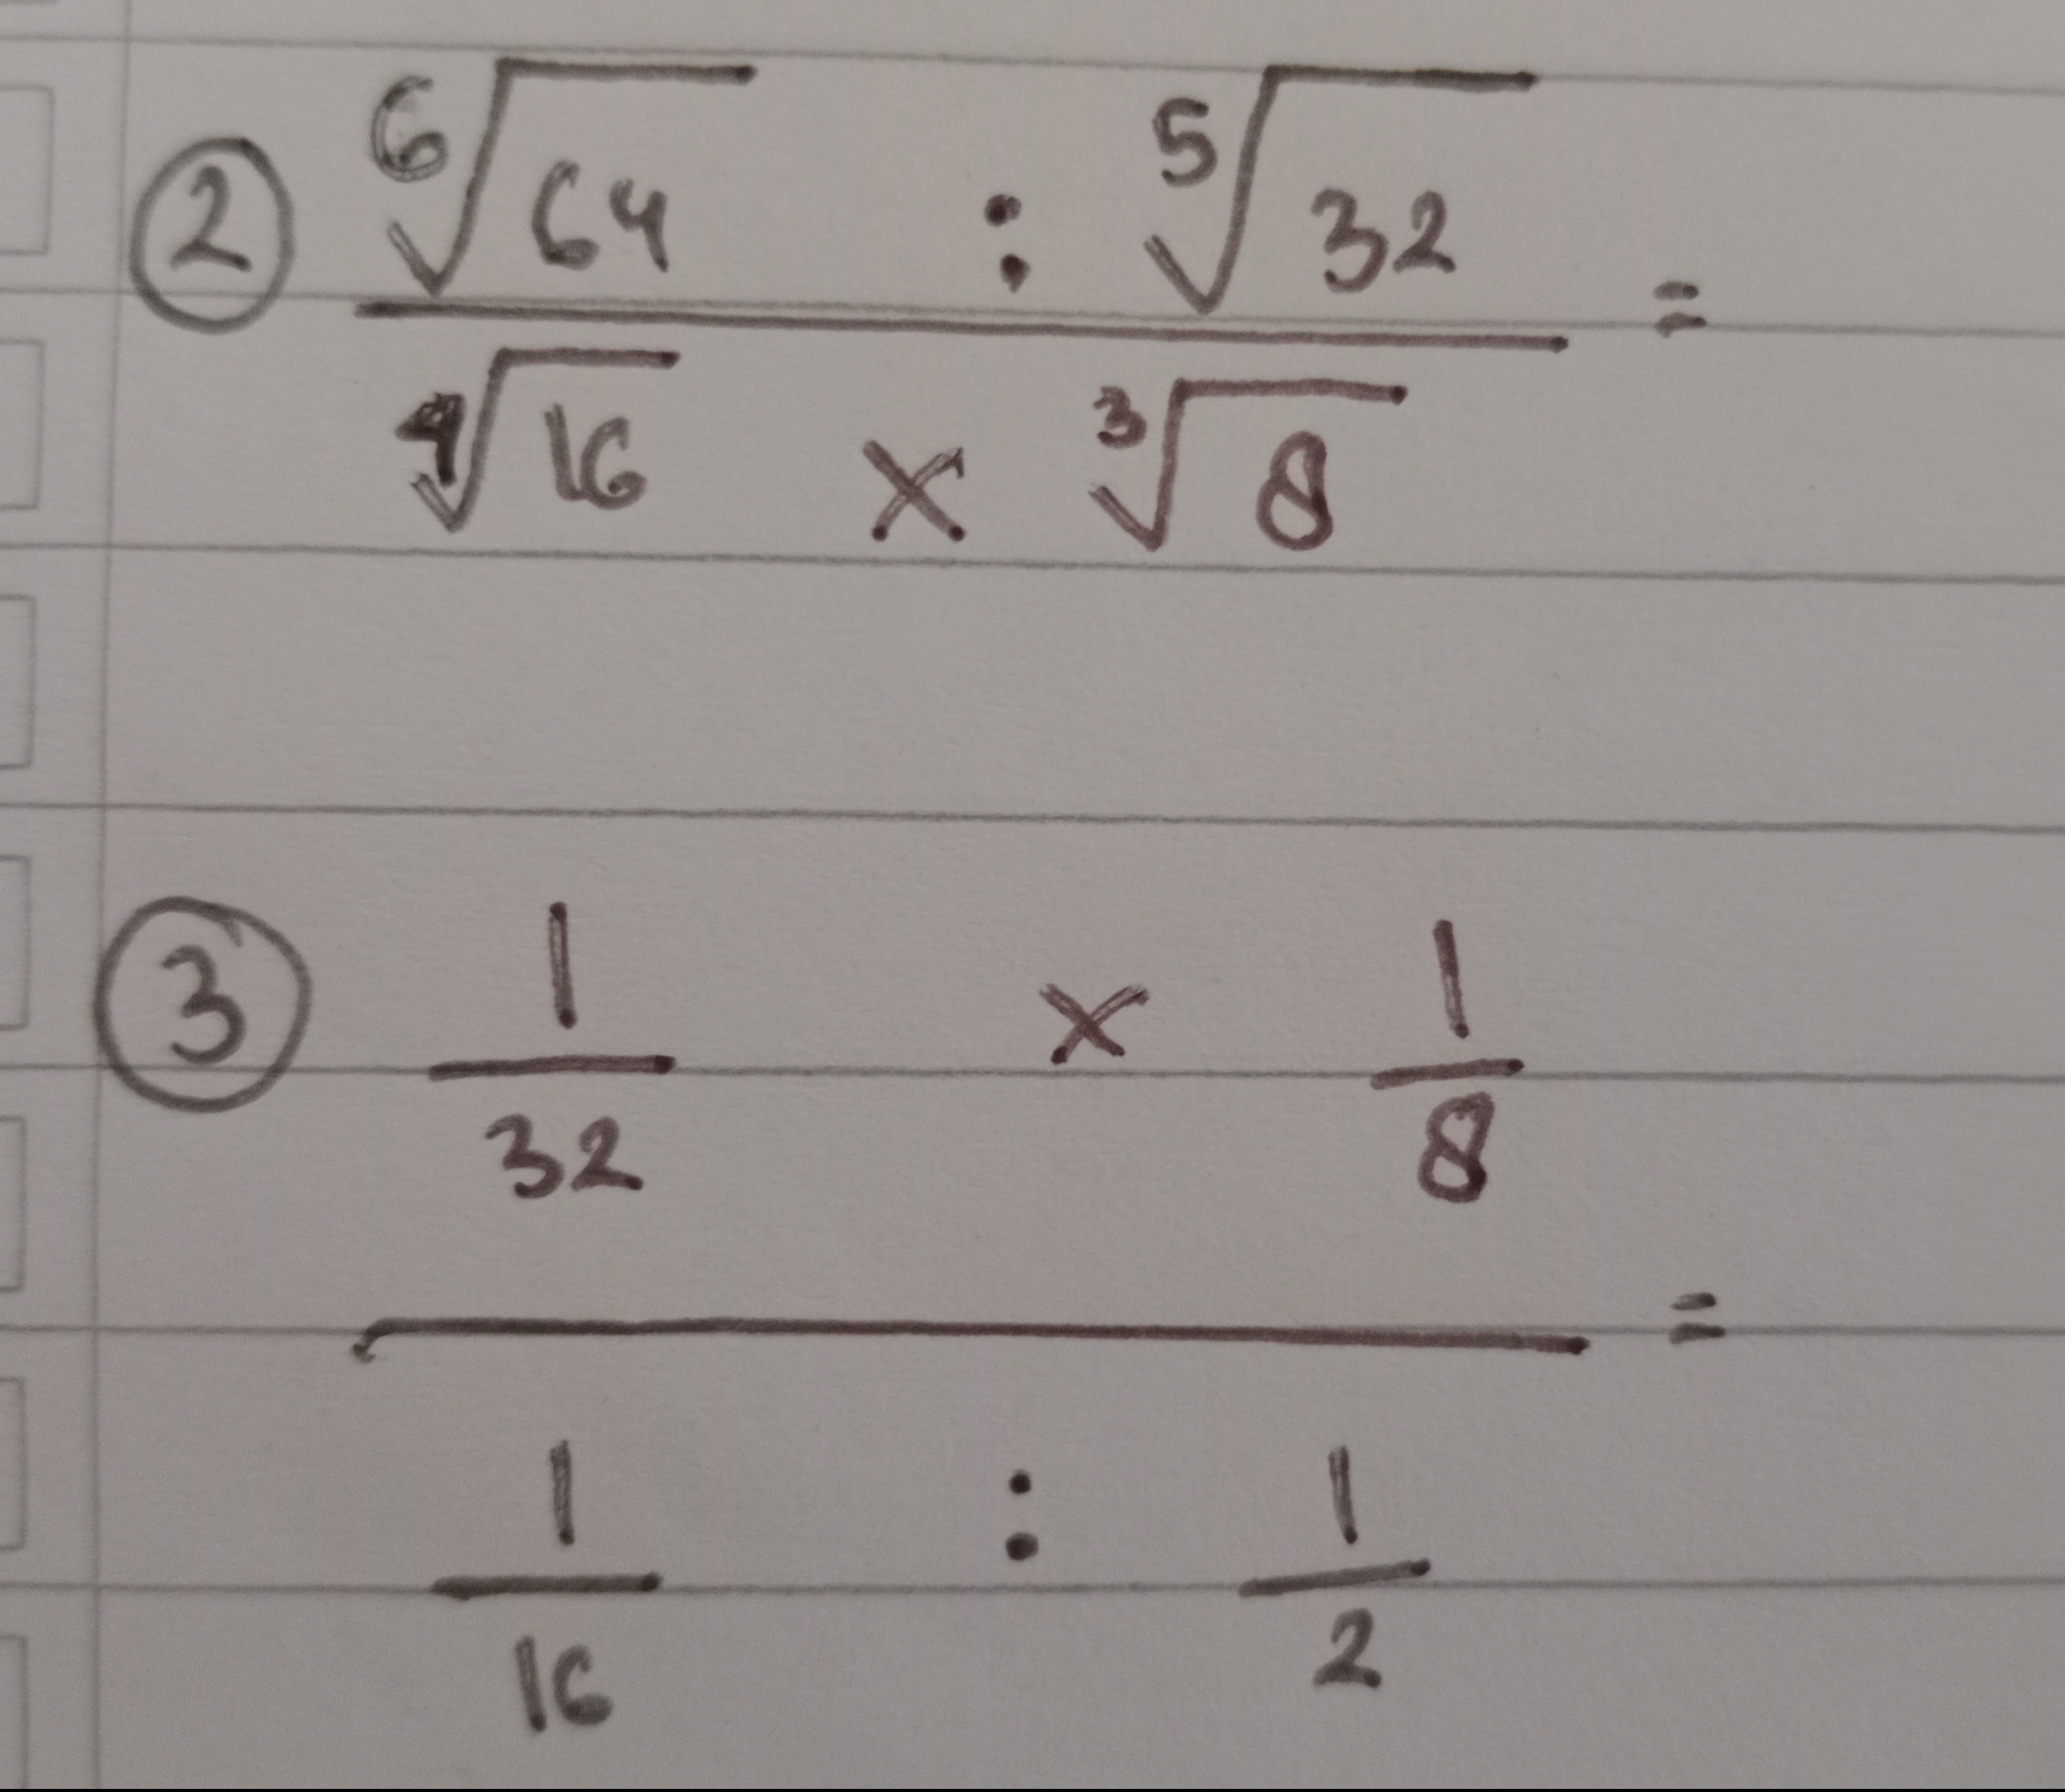 ② ⁶√64 : ⁵√32 =
⁴√16 × ³√8
③ 1 × 1
32 8
=
1 : 1
16 2